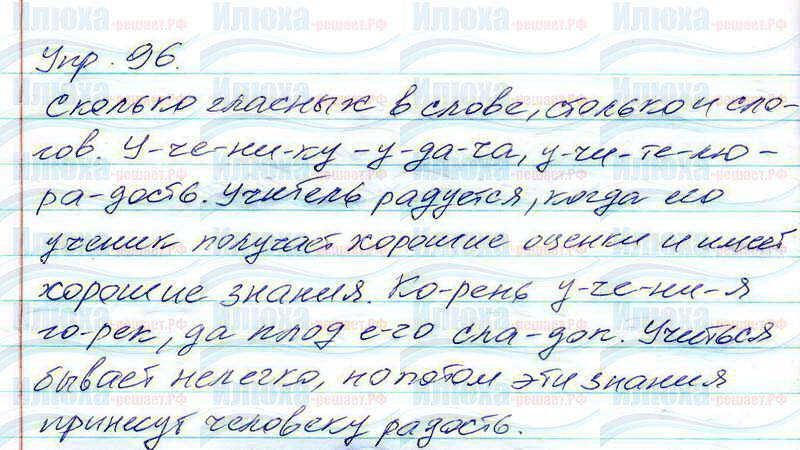 Упр. 96.
Сколько гласных в слове, столько и сло-
гов. У-че-ни-ку - у-да-ча, у-чи-те-лю -
ра-дость. Учитель радуется, когда его
ученик получает хорошие оценки и имеет
хорошие знания. Ко-рень у-че-ни-я
го-рек, да плод е-го сла-док. Учиться
бывает нелегко, но потом эти знания
принесут человеку радость.